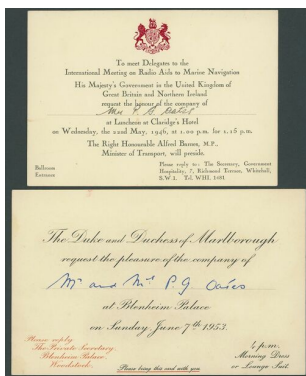 To meet Delegates to the
International Meeting on Radio Aids to Marine Navigation
His Majesty's Government in the United Kingdom of
Great Britain and Northern Ireland
request the honour of the company of
at Luncheon at Claridge's Hotel
on Wednesday, the 22nd May, 1946, at 1.00 p.m. for 1.15 p.m.
The Right Honourable Alfred Barnes, M.P.,
Minister of Transport, will preside.
Ballroom
Entrance
Please reply to: The Secretary, Government
Hospitality, 7, Richmond Terrace, Whitehall,
S.W.1. Tel. WHI.
The Duke and Duchess of Marlborough
request the pleasure of the company of
Mr and Mrs P G
at Blenheim Palace
on Sunday June 7th 1953.
Please reply
The Private Secretary,
Blenheim Palace,
Woodstock.
Please bring this card with you
p.m.
Morning Dress
or Lounge Suit.